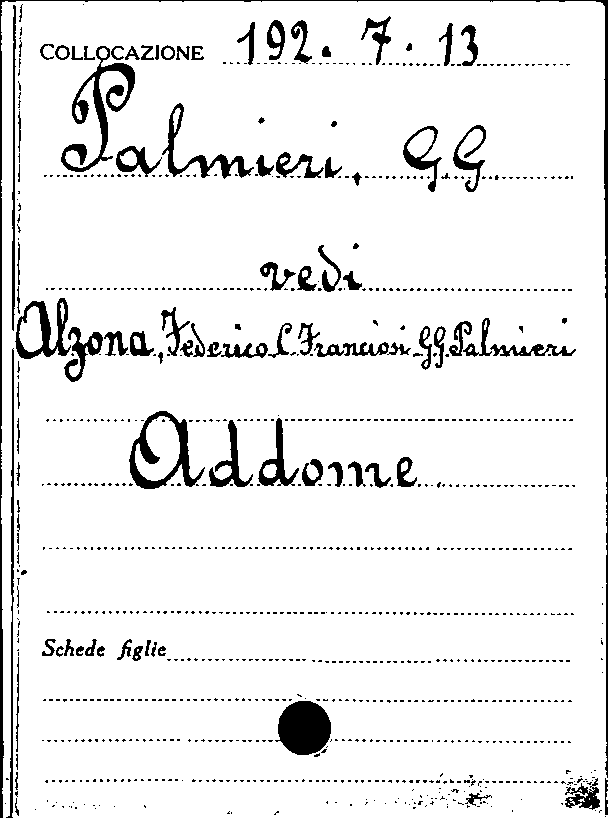 COLLOCAZIONE 192. 7. 13
Palmieri, G.G.
vedi
Alzona, Federico C. Franciosi G.G. Palmieri
Addome.
Schede figlie